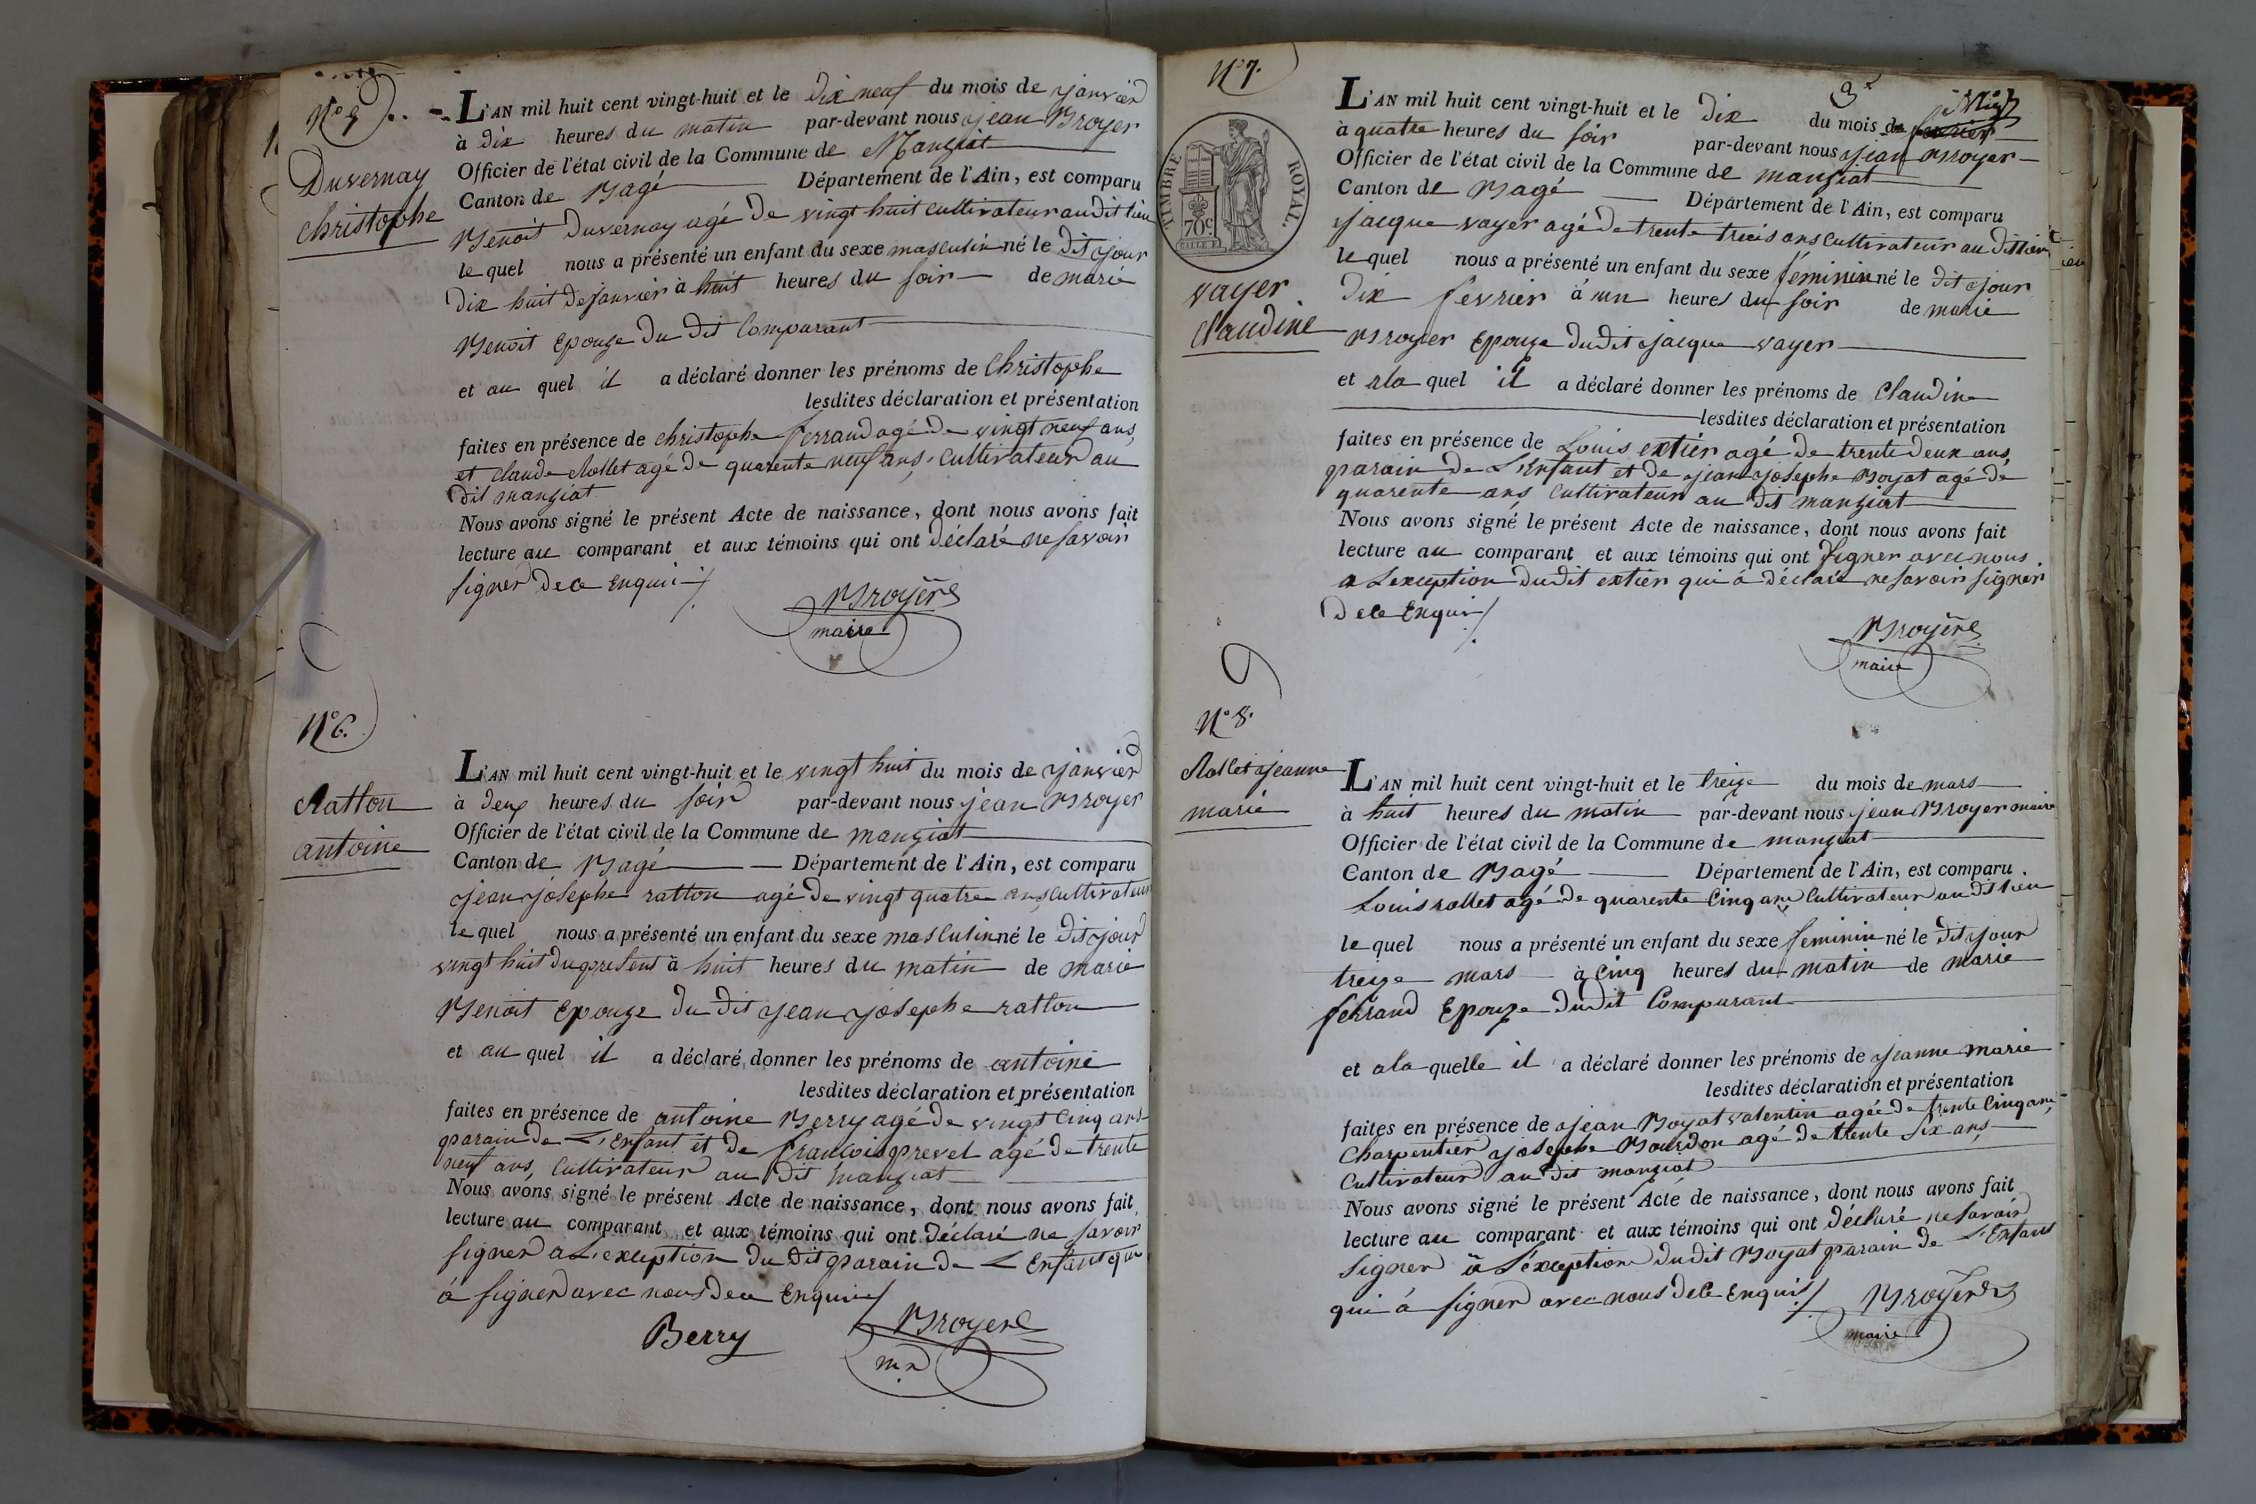 N° 5
Duvernay
christophe
L'AN mil huit cent vingt-huit et le dix neuf du mois de janvier
à dix heures du matin par-devant nous jean Broyer
Officier de l'état civil de la Commune de Manziat
Canton de Bagé Département de l'Ain, est comparu
Benoit Duvernay agé de vingt huit cultivateur audit lieu
le quel nous a présenté un enfant du sexe masculin né le dit jour
dix huit de janvier à huit heures du soir de marie
Benoit Epouze du dit Comparant
et au quel il a déclaré donner les prénoms de Christophe
lesdites déclaration et présentation
faites en présence de christophe ferraud agé de vingt neuf ans,
et claude Mollet agé de quarente neuf ans, cultivateur au
dit manziat
Nous avons signé le présent Acte de naissance, dont nous avons fait
lecture au comparant et aux témoins qui ont déclaré ne savoir
signer de ce Enqui
Broyer
maire
N° 6.
Ratton
antoine
L'AN mil huit cent vingt-huit et le vingt huit du mois de janvier
à deux heures du soir par-devant nous jean Broyer
Officier de l'état civil de la Commune de manziat
Canton de Bagé Département de l'Ain, est comparu
jean josephe ratton agé de vingt quatre ans, cultivateur
le quel nous a présenté un enfant du sexe masculin né le dit jour
vingt huit du present à huit heures du matin de marie
Benoit Epouze du dit jean josephe ratton
et au quel il a déclaré donner les prénoms de antoine
lesdites déclaration et présentation
faites en présence de antoine Berry agé de vingt Cinq ans
parain de L'Enfant et de francois prevel agé de trente
neuf ans, Cultivateur au dit manziat
Nous avons signé le présent Acte de naissance, dont nous avons fait
lecture au comparant et aux témoins qui ont déclaré ne savoir
signer a L'exception du dit parain de L'Enfant qui
à signer avec nous de ce Enquis
Berry Broyer
N° 7.
TIMBRE ROYAL.
70c
vayer
Claudine
L'AN mil huit cent vingt-huit et le dix du mois de fevrier
à quatre heures du soir par-devant nous jean Broyer
Officier de l'état civil de la Commune de manziat
Canton de Bagé Département de l'Ain, est comparu
jacque vayer agé de trente trois ans cultivateur au dit lieu
le quel nous a présenté un enfant du sexe féminin né le dit jour
dix février à un heures du soir de marie
Broyer Epouze dudit jacque vayer
et a la quel il a déclaré donner les prénoms de Claudine
lesdites déclaration et présentation
faites en présence de Louis extier agé de trente deux ans,
parain de L'Enfant et de jean josephe Boyat agé de
quarente ans, cultivateur au dit manziat
Nous avons signé le présent Acte de naissance, dont nous avons fait
lecture au comparant et aux témoins qui ont signer avec nous
a L'exception dudit extier qui à déclaré ne savoir signer
de ce Enqui
Broyer
maire
N° 8.
Rollet jeanne
marie
L'AN mil huit cent vingt-huit et le treize du mois de mars
à huit heures du matin par-devant nous jean Broyer maire
Officier de l'état civil de la Commune de manziat
Canton de Bagé Département de l'Ain, est comparu
Louis rollet agé de quarente Cinq ans Cultivateur au dit lieu
le quel nous a présenté un enfant du sexe feminin né le dit jour
treize mars à Cinq heures du matin de marie
ferrand Epouze dudit Comparant
et a la quelle il a déclaré donner les prénoms de jeanne marie
lesdites déclaration et présentation
faites en présence de jean Boyat valentin agée de trente Cinq ans,
Charpentier josephe Bourdon agé de trente six ans,
Cultivateur au dit manziat
Nous avons signé le présent Acte de naissance, dont nous avons fait
lecture au comparant et aux témoins qui ont déclaré ne savoir
signer à L'exception dudit Boyat parain de L'Enfant
qui à signer avec nous de ce Enquis
Broyer
maire